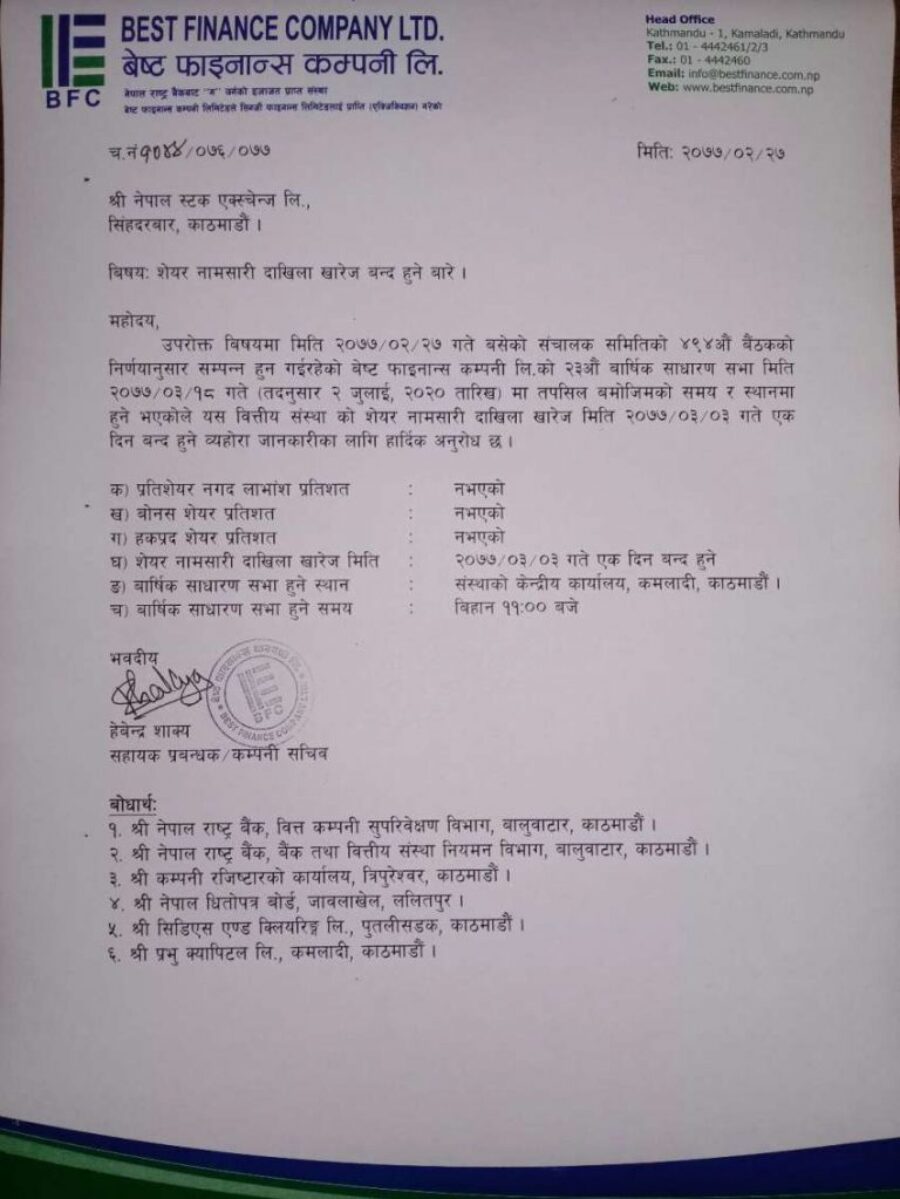 BEST FINANCE COMPANY LTD.
बेष्ट फाइनान्स कम्पनी लि.
नेपाल राष्ट्र बैंकबाट "ग" वर्गको इजाजत प्राप्त संस्था
बेष्ट फाइनान्स कम्पनी लिमिटेडले सिनर्जी फाइनान्स लिमिटेडलाई प्राप्ति (एक्विजिसन) गरेको
BFC
Head Office
Kathmandu - 1, Kamaladi, Kathmandu
Tel.: 01 - 4442461/2/3
Fax.: 01 - 4442460
Email: info@bestfinance.com.np
Web: www.bestfinance.com.np
च.नं १०४४/०७६/०७७
मिति: २०७७/०२/२७
श्री नेपाल स्टक एक्स्चेन्ज लि.,
सिंहदरबार, काठमाडौं ।
बिषय: शेयर नामसारी दाखिला खारेज बन्द हुने बारे ।
महोदय,
उपरोक्त विषयमा मिति २०७७/०२/२७ गते बसेको संचालक समितिको ४९४औं बैंठकको
निर्णयानुसार सम्पन्न हुन गईरहेको बेष्ट फाइनान्स कम्पनी लि.को २३औं बार्षिक साधारण सभा मिति
२०७७/०३/१८ गते (तदनुसार २ जुलाई, २०२० तारिख) मा तपसिल बमोजिमको समय र स्थानमा
हुने भएकोले यस वित्तीय संस्था को शेयर नामसारी दाखिला खारेज मिति २०७७/०३/०३ गते एक
दिन बन्द हुने व्यहोरा जानकारीका लागि हार्दिक अनुरोध छ ।
क) प्रतिशेयर नगद लाभांश प्रतिशत : नभएको
ख) बोनस शेयर प्रतिशत : नभएको
ग) हकप्रद शेयर प्रतिशत : नभएको
घ) शेयर नामसारी दाखिला खारेज मिति : २०७७/०३/०३ गते एक दिन बन्द हुने
ङ) बार्षिक साधारण सभा हुने स्थान : संस्थाको केन्द्रीय कार्यालय, कमलादी, काठमाडौं ।
च) बार्षिक साधारण सभा हुने समय : बिहान ११:०० बजे
भवदीय
बेष्ट फाइनान्स कम्पनी लि.
BFC
BEST FINANCE COMPANY LTD.
हेबेन्द्र शाक्य
सहायक प्रबन्धक/कम्पनी सचिव
बोधार्थ:
१. श्री नेपाल राष्ट्र बैंक, वित्त कम्पनी सुपरिवेक्षण विभाग, बालुवाटार, काठमाडौं ।
२. श्री नेपाल राष्ट्र बैंक, बैंक तथा वित्तीय संस्था नियमन विभाग, बालुवाटार, काठमाडौं ।
३. श्री कम्पनी रजिष्टारको कार्यालय, त्रिपुरेश्वर, काठमाडौं ।
४. श्री नेपाल धितोपत्र बोर्ड, जावलाखेल, ललितपुर ।
५. श्री सिडिएस एण्ड क्लियरिङ्ग लि., पुतलीसडक, काठमाडौं ।
६. श्री प्रभु क्यापिटल लि., कमलादी, काठमाडौं ।